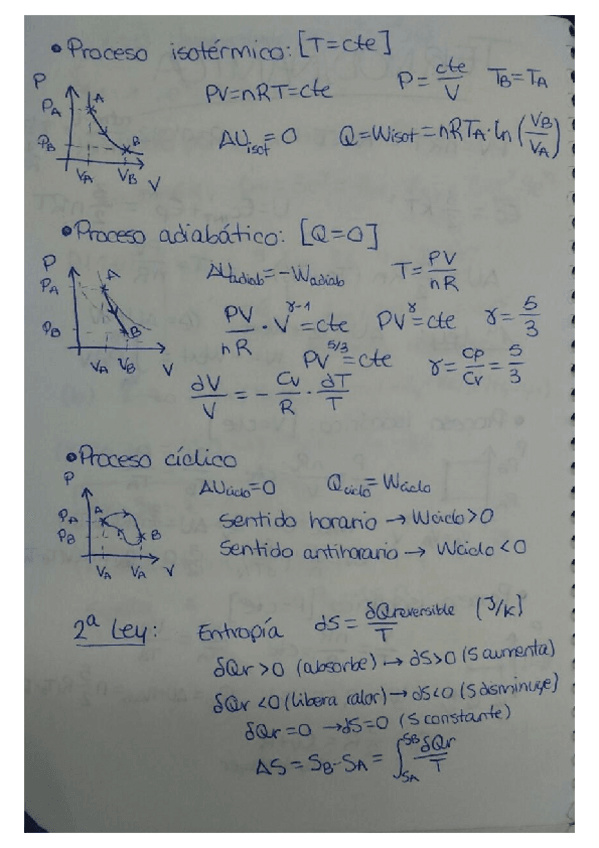 • Proceso isotérmico: [T=cte]
P
PV=nRT=cte P=cte/V T_B=T_A
P_A A
ΔU_isot=0 Q=W_isot=nRT_A·ln(V_B/V_A)
P_B B
V_A V_B V
• Proceso adiabático: [Q=0]
P
ΔU_adiab=-W_adiab T=PV/nR
P_A A
PV/nR · V^(γ-1)=cte PV^γ=cte γ=5/3
P_B B
PV^(5/3)=cte γ=Cp/Cv=5/3
V_A V_B V
dV/V = - Cv/R · dT/T
• Proceso cíclico
P
ΔU_ciclo=0 Q_ciclo=W_ciclo
P_A A
Sentido horario → W_ciclo>0
P_B B
Sentido antihorario → W_ciclo<0
V_A V_A V
2ª Ley: Entropía dS = δQ_reversible/T [J/K]
δQr>0 (absorbe) → dS>0 (S aumenta)
δQr<0 (libera calor) → dS<0 (S disminuye)
δQr=0 → dS=0 (S constante)
ΔS = S_B-S_A = ∫_SA^SB δQr/T